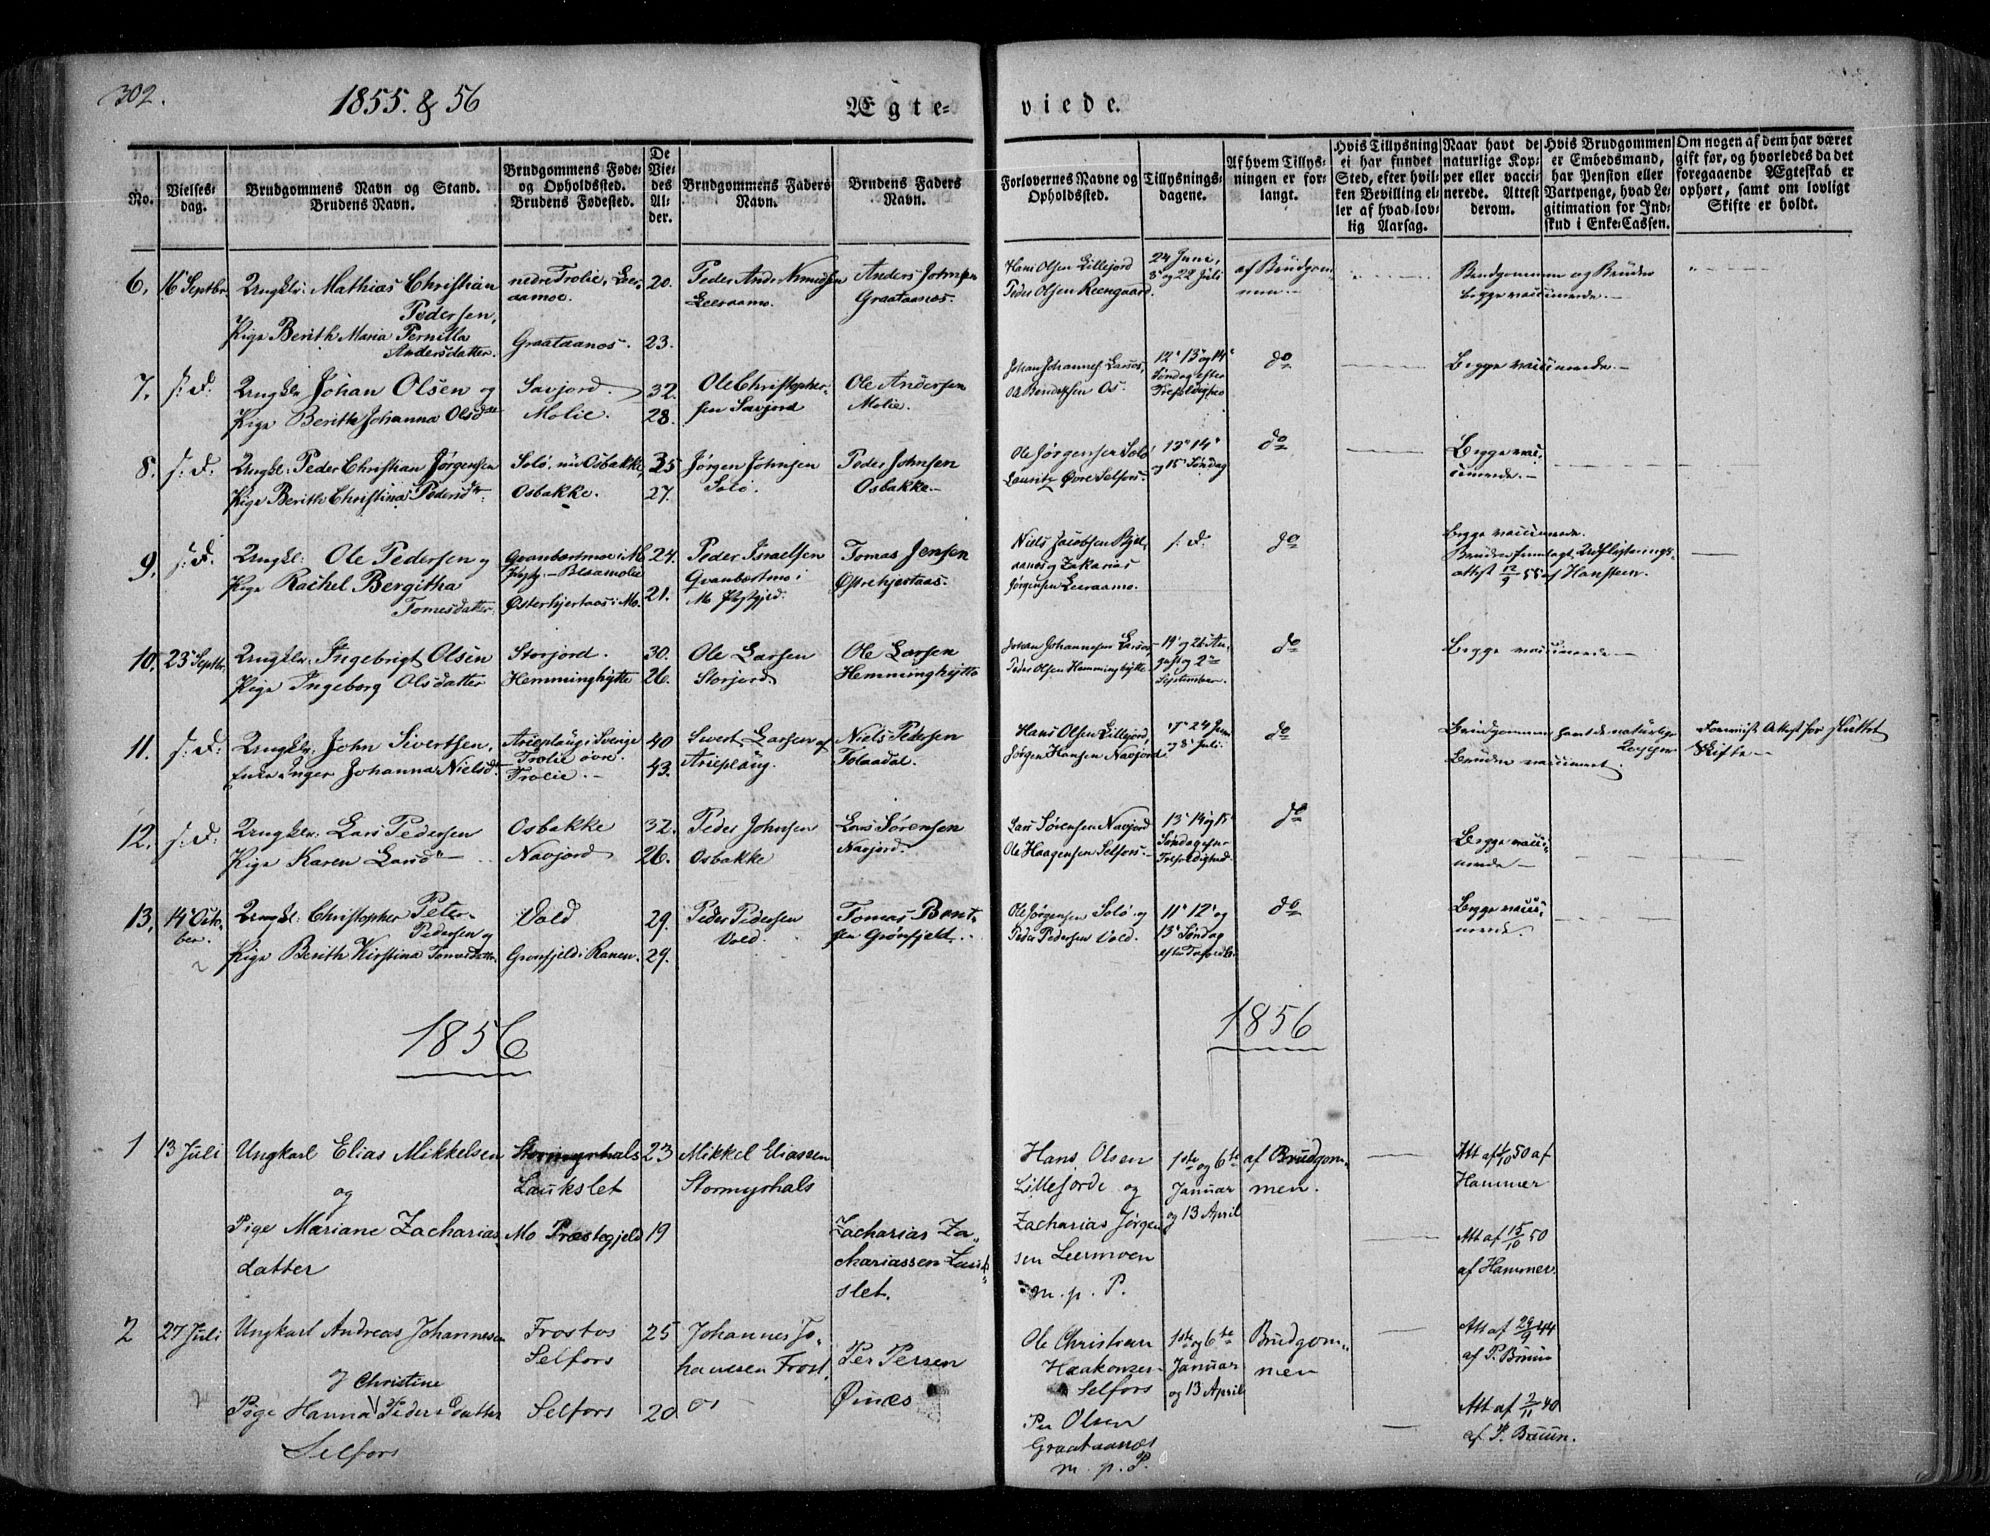 302.
1855. & 56
Ægte-
viede.
No.
Vielses-
dag.
Brudgommens Navn og Stand.
Brudens Navn.
Brudgommens Føde-
og Opholdssted.
Brudens Fødested.
De
Vie-
des
Al-
der.
Brudgommens Faders
Navn.
Brudens Faders
Navn.
Forlovernes Navne og
Opholdssted.
Tillysnings-
dagene.
Af hvem Tillys-
ningen er for-
langt.
Hvis Tillysning
ei har fundet
Sted, efter hvil-
ken Bevilling el-
ler af hvad lov-
lig Aarsag.
Naar havt de
naturlige Kop-
per eller vacci-
nerede. Attest
derom.
Hvis Brudgommen
er Embedsmand,
har Pension eller
Vartpenge, hvad Le-
gitimation for Ind-
skud i Enke-Cassen.
Om nogen af dem har været
gift før, og hvorledes da det
foregaaende Ægteskab er
ophørt, samt om lovligt
Skifte er holdt.
6. 16 Septbr. Ungkl: Mathias Christian
Pedersen,
Pige Berith Maria Pernilla
Andersdatter.
nedre Trolie, Leer-
aamoe.
Graataanæs.
20.
23.
Peder And: Amundsen
Leeraamo.
Anders Johnsen
Graataanæs.
Hans Olsen Lillejord
Peder Olsen Reengaard.
24 Juni,
8 og 22 Juli
af Brudgom-
men.
Brudgommen og Bruden
begge vaccinerede.
7. s: D: Ungkl: Johan Olsen og
Pige Berith Johanna Olsdtt
Savjord.
Molie.
32.
28.
Ole Christopher-
sen Savjord
Ole Andersen
Molie.
Ole Bendixsen Os.
12' 13' og 14'
Søndag efter
do
Begge vaccinerede.
8. s: D. Ungkl: Peder Christian Jørgensen
Pige Berith Christina Pedersdtr.
Solø, nu Osbakke
Osbakke.
35
27.
Jørgen Johnsen
Solø.
Peder Johnsen
Osbakke.
Ole Jørgensen Solø
Lauritz Øvre Selfors.
13' 14'
og 15' Søndag
do
Begge vac-
cinerede.
9. s: D. Ungkl: Ole Pedersen og
Pige Rachel Bergitha
Tomesdatter.
Østerhjertaas i Mo.
24.
21.
Peder Israelsen
Tomas Jensen
Niels Jacobsen
aanæs og Zakarias
Jørgensen Leeraamo.
s: D.
do
Begge vaccinerede.
attest 12/9 55 af Hansteen.
10. 23 Septbr. Ungkl: Ingebrigt Olsen
Pige Ingeborg Olsdatter
Storjord.
Hemminghytte
30.
26.
Ole Larsen
Storjord
Ole Larsen
Hemminghytte
Peder Olsen Hemminghytte
19' og 26' Au-
gust og 2den
September
do
Begge vaccinerede.
11. s: D: Ungkl: John Sivertsen,
Enke Inger Johanna Nielsd
Arieplaug i Sverige
Trolie øvre.
Trolie.
40
43.
Sivert Larsen af
Arieplaug.
Niels Pedersen
Hans Olsen Lillejord,
Jørgen Hansen Navjord.
17' 24 Juni
og 8' Juli.
do
Brudgommen havt de naturlige
Kopper
Bruden vaccineret.
Forevist Attest for sluttet
Skifte.
12. s: D: Ungkl: Lars Pedersen
Pige Karen Larsd
Osbakke
Navjord
32.
26.
Peder Johnsen
Osbakke
Lars Sørensen
Navjord.
Lars Sørensen Navjord
Ole Haagensen Selfors.
13' 14 og 15'
do
Begge vacci-
nerede
13. 14' Octo-
ber.
Ungkl: Christopher Peter
Pedersen og
Pige Berith Kirstina Tomasdatter.
Vold
Grønfjeld i Ranen.
29.
29.
Peder Pedersen
Vold.
Tomas Bent-
sen Grønfjeld.
Ole Jørgensen Solø og
Peder Pedersen Vold.
11' 12' og
13' Søndag
do
Begge vacci-
nerede.
1856
1856
1 13 Juli Ungkarl Elias Mikkelsen
og
Pige Mariane Zacharias-
datter
Stormyrhals
Laukslet
Mo Præstegjeld
23
19
Mikkel Eliassen
Stormyrhals
Zacharias Za-
chariassen Lauk-
slet.
Hans Olsen
Lillejorde og
Zacharias Jørgen-
sen Leermoen
m. p. P.
1ste og 6te
Januar
og 13 April
af Brudgom-
men.
Hammer
Att af 15/10 50
af Hammer.
2 27 Juli Ungkarl Andreas Johannesen
Christine
Pige Hanna Pedersdatter
Selfors
Frostos
Selfors
Selfors
25
20
Johannes Jo-
hansen Frost-
os
Per Persen
Øines
Ole Christian
Haakonsen
Selfors
Per Olsen
Graataanæs
m. p. P.
1ste og 6te
Januar
og 13 April
Brudgom-
men
Att af 29/9 44
af P. Bruun
Att af 2/11 40
af P. Bruun.